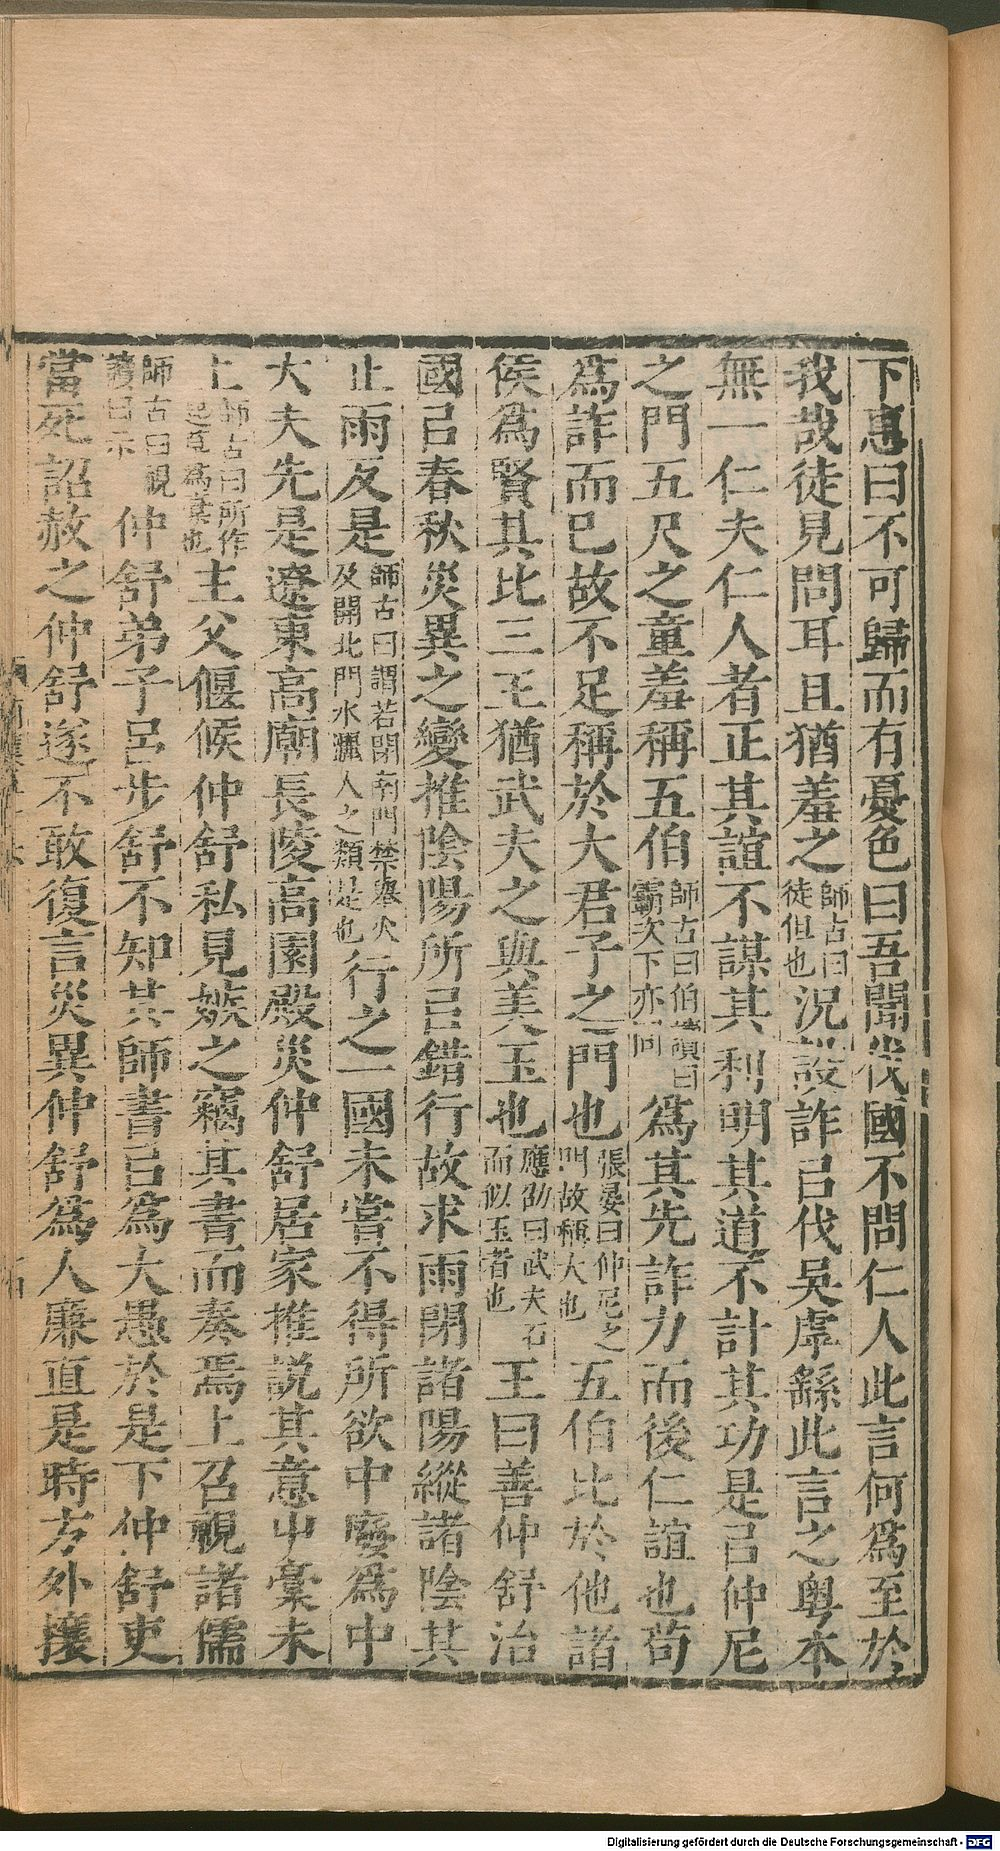 下惠曰不可歸而有憂色曰吾聞伐國不問仁人此言何爲至於
我哉徒見問耳且猶羞之師古曰徒但也況設詐㠯伐吳虖繇此言之粤本
無一仁夫仁人者正其誼不謀其利明其道不計其功是㠯仲尼
之門五尺之童羞稱五伯師古曰伯讀曰霸次下亦同爲其先詐力而後仁誼也苟
爲詐而已故不足稱於大君子之門也張晏曰仲尼之門故稱大也五伯比於他諸
侯爲賢其比三王猶武夫之與美玉也應劭曰武夫石而似玉者也王曰善仲舒治
國㠯春秋災異之變推陰陽所㠯錯行故求雨閉諸陽縱諸陰其
止雨反是師古曰謂若閉南門禁舉火及開北門水灑人之類是也行之一國未嘗不得所欲中廢爲中
大夫先是遼東高廟長陵高園殿災仲舒居家推説其意屮稾未
上師古曰所作起草爲稾也主父偃候仲舒私見嫉之竊其書而奏焉上召視諸儒
師古曰視讀曰示仲舒弟子呂步舒不知其師書㠯爲大愚於是下仲舒吏
當死詔赦之仲舒遂不敢復言災異仲舒爲人廉直是時方外攘
Digitalisierung gefördert durch die Deutsche Forschungsgemeinschaft - DFG